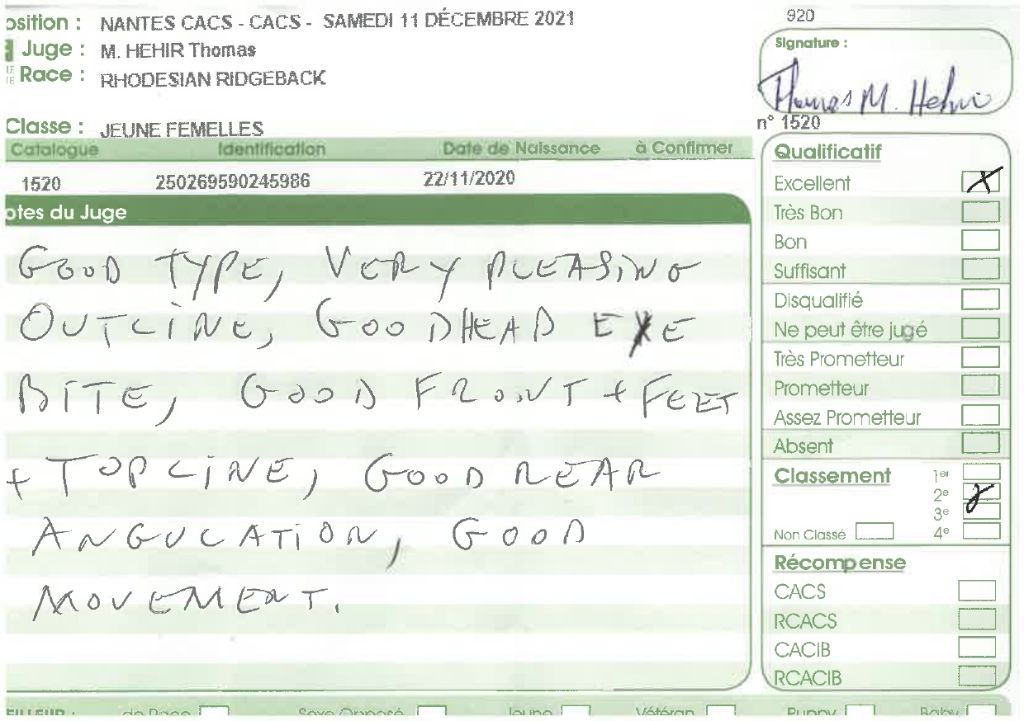 osition : NANTES CACS - CACS - SAMEDI 11 DÉCEMBRE 2021
920
Juge : M. HEHIR Thomas
Signature :
Race : RHODESIAN RIDGEBACK
Thomas M. Hehir
Classe : JEUNE FEMELLES
n° 1520
Catalogue Identification Date de Naissance à Confirmer
1520 250269590245986 22/11/2020
otes du Juge
GOOD TYPE, VERY PLEASING
OUTLINE, GOOD HEAD EYE
BITE, GOOD FRONT + FEET
+ TOPLINE, GOOD REAR
ANGULATION, GOOD
MOVEMENT.
Qualificatif
Excellent X
Très Bon
Bon
Suffisant
Disqualifié
Ne peut être jugé
Très Prometteur
Prometteur
Assez Prometteur
Absent
Classement 1er
2e 2
3e
Non Classé 4e
Récompense
CACS
RCACS
CACIB
RCACIB
EILLEUR : de Race Sexe Opposé Jeune Vétéran Puppy Baby